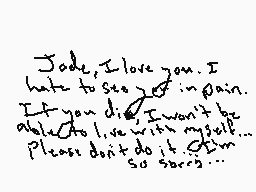 Jade, I love you. I
hate to see you in pain.
If you die, I won't be
able to live with myself...
Please don't do it. I'm
so sorry...